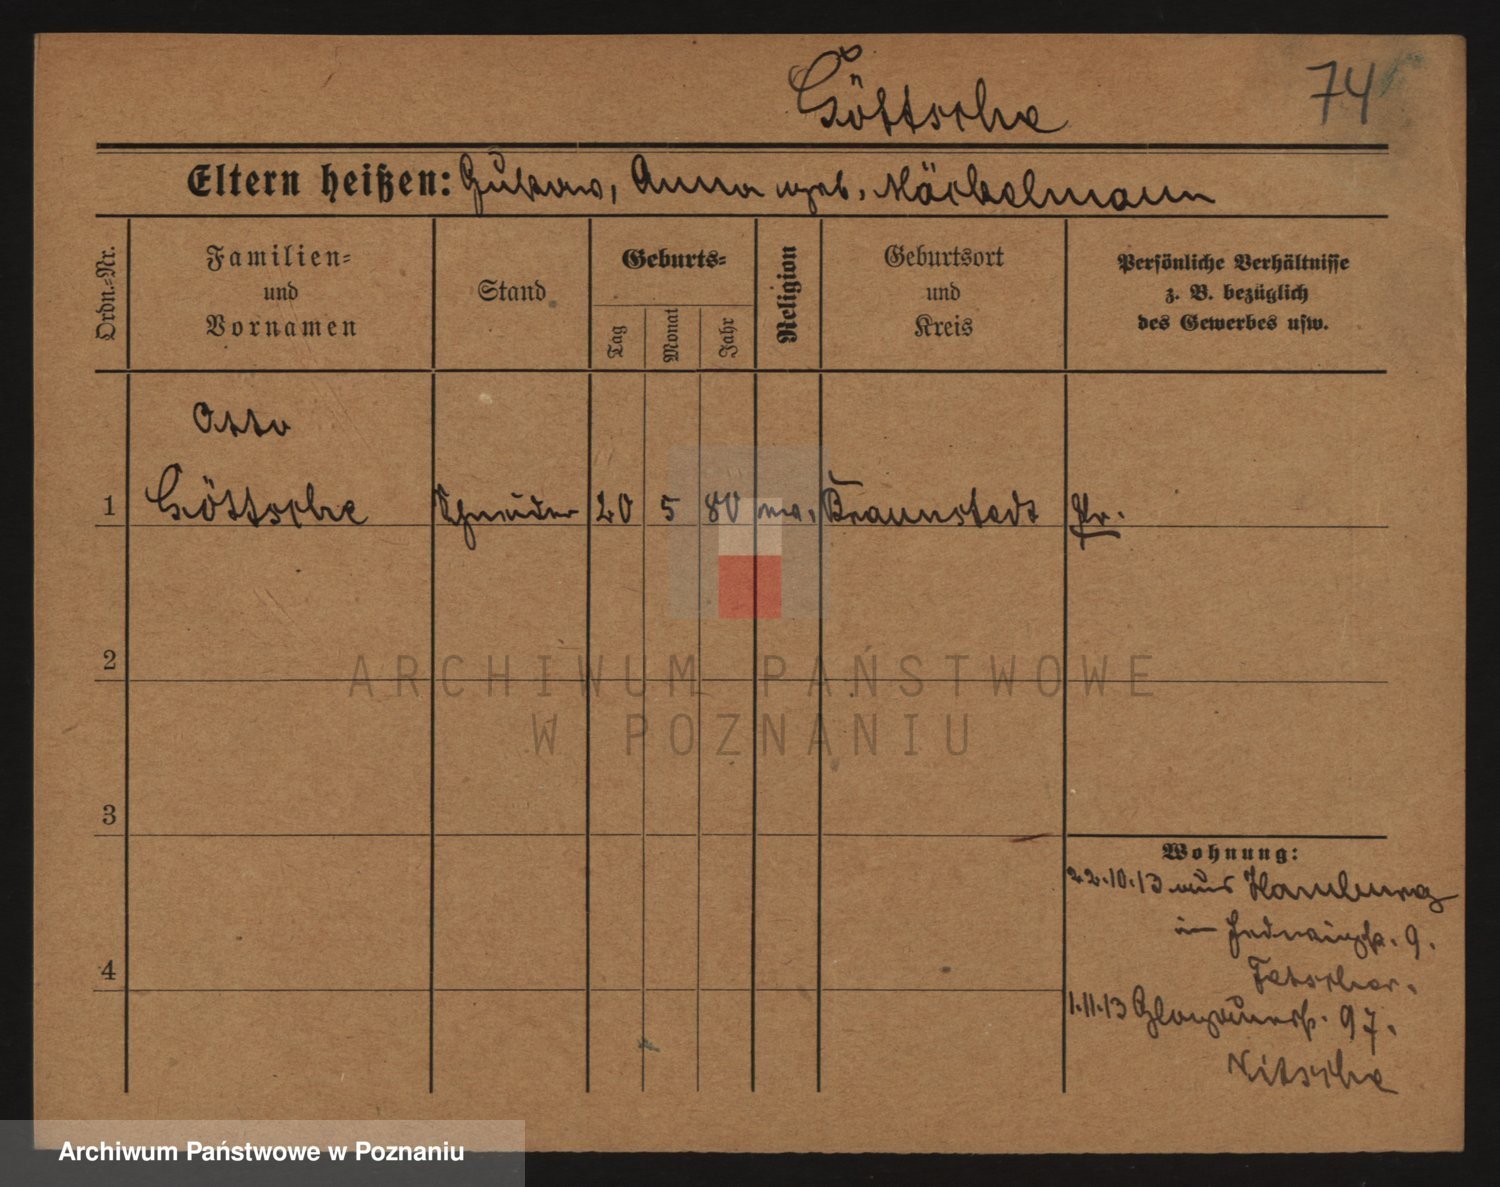 Göttsche
74
Eltern heißen: Gustav, Anna geb. Mäckelmann
Ordn.-Nr.
Familien-
und
Vornamen
Stand
Geburts-
Tag
Monat
Jahr
Religion
Geburtsort
und
Kreis
Persönliche Verhältnisse
z. B. bezüglich
des Gewerbes usw.
Otto
1 Göttsche Schneider 20 5 80 ev. Braunstedt Pr.
2
3
4
Wohnung:
22.10.13 aus Hamburg
in 9.
Fetscher.
1.11.13 Glogauerstr. 97.
Nitsche
ARCHIWUM PAŃSTWOWE
W POZNANIU
Archiwum Państwowe w Poznaniu